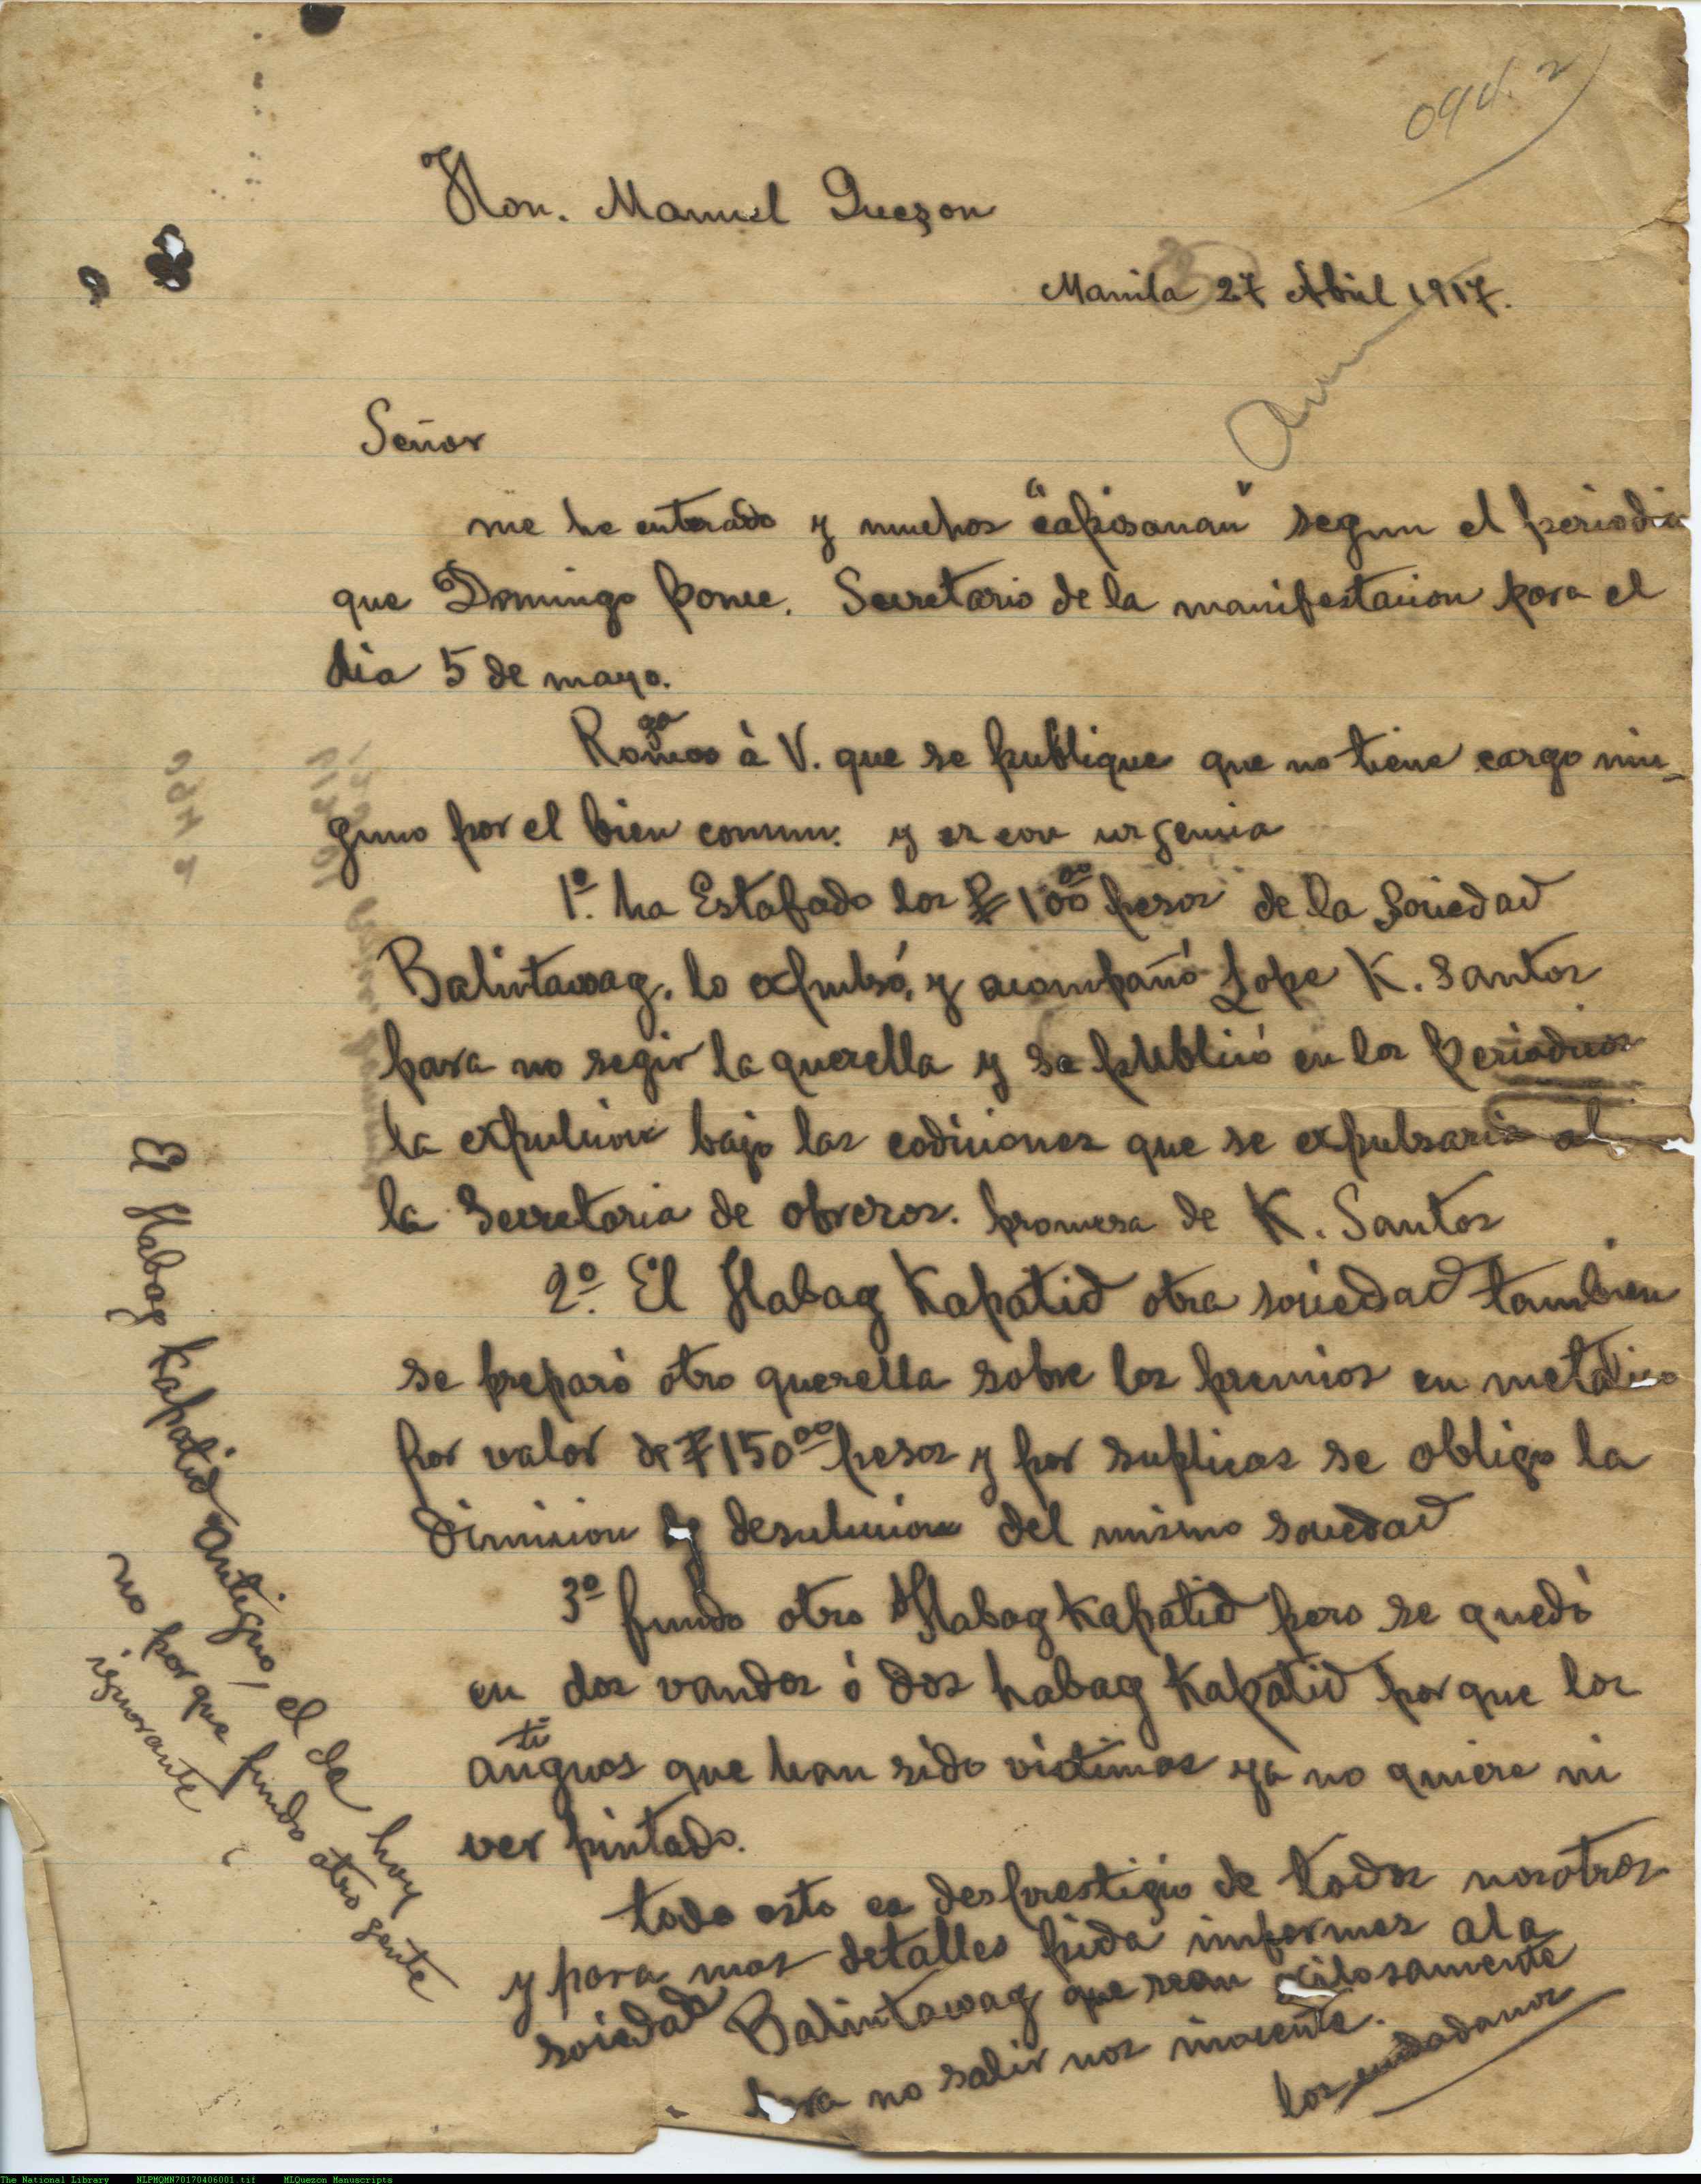 Hon. Manuel Quezon
Manila 27 Abril 1917.
Señor
me he enterado y muchos "capisanan" segun el periodico
que Domingo Ponce. Secretario de la manifestacion para el
dia 5 de mayo.
Rogamos à V. que se publique que no tiene cargo nin-
guno por el bien comun. y es con urgencia
1º. ha Estafado los ₱100.00 pesos de la Sociedad
Balintawag. lo expulsó, y acompañó Lope K. Santos
para no segir la querella y se publicó en los periodicos
la expulcion bajo las codiciones que se expulsaria al
la Secretaria de obreros. promesa de K. Santos
2º. El Habag Kapatid otra sociedad tambien
se preparó otro querella sobre los premios en metalico
por valor de ₱150.00 pesos y por suplicas se obligo la
dimicion y desulucion del mismo sociedad
3º fundo otro Habag Kapatid pero se quedó
en dos vandos ó dos habag Kapatid porque los
antiguos que han sido victimas ya no quiere ni
ver pintado.
todo esto es desprestigio de todos nosotros
y para mas detalles pida informes al a
sociedad Balintawag que sean silosamente
para no salir nos inocente.
los ciudadanos
El Habag Kapatid antiguo, el de hoy
no porque fundo otro gente
ignorante
The National Library NLPMQMN70170406001.tif MLQuezon Manuscripts